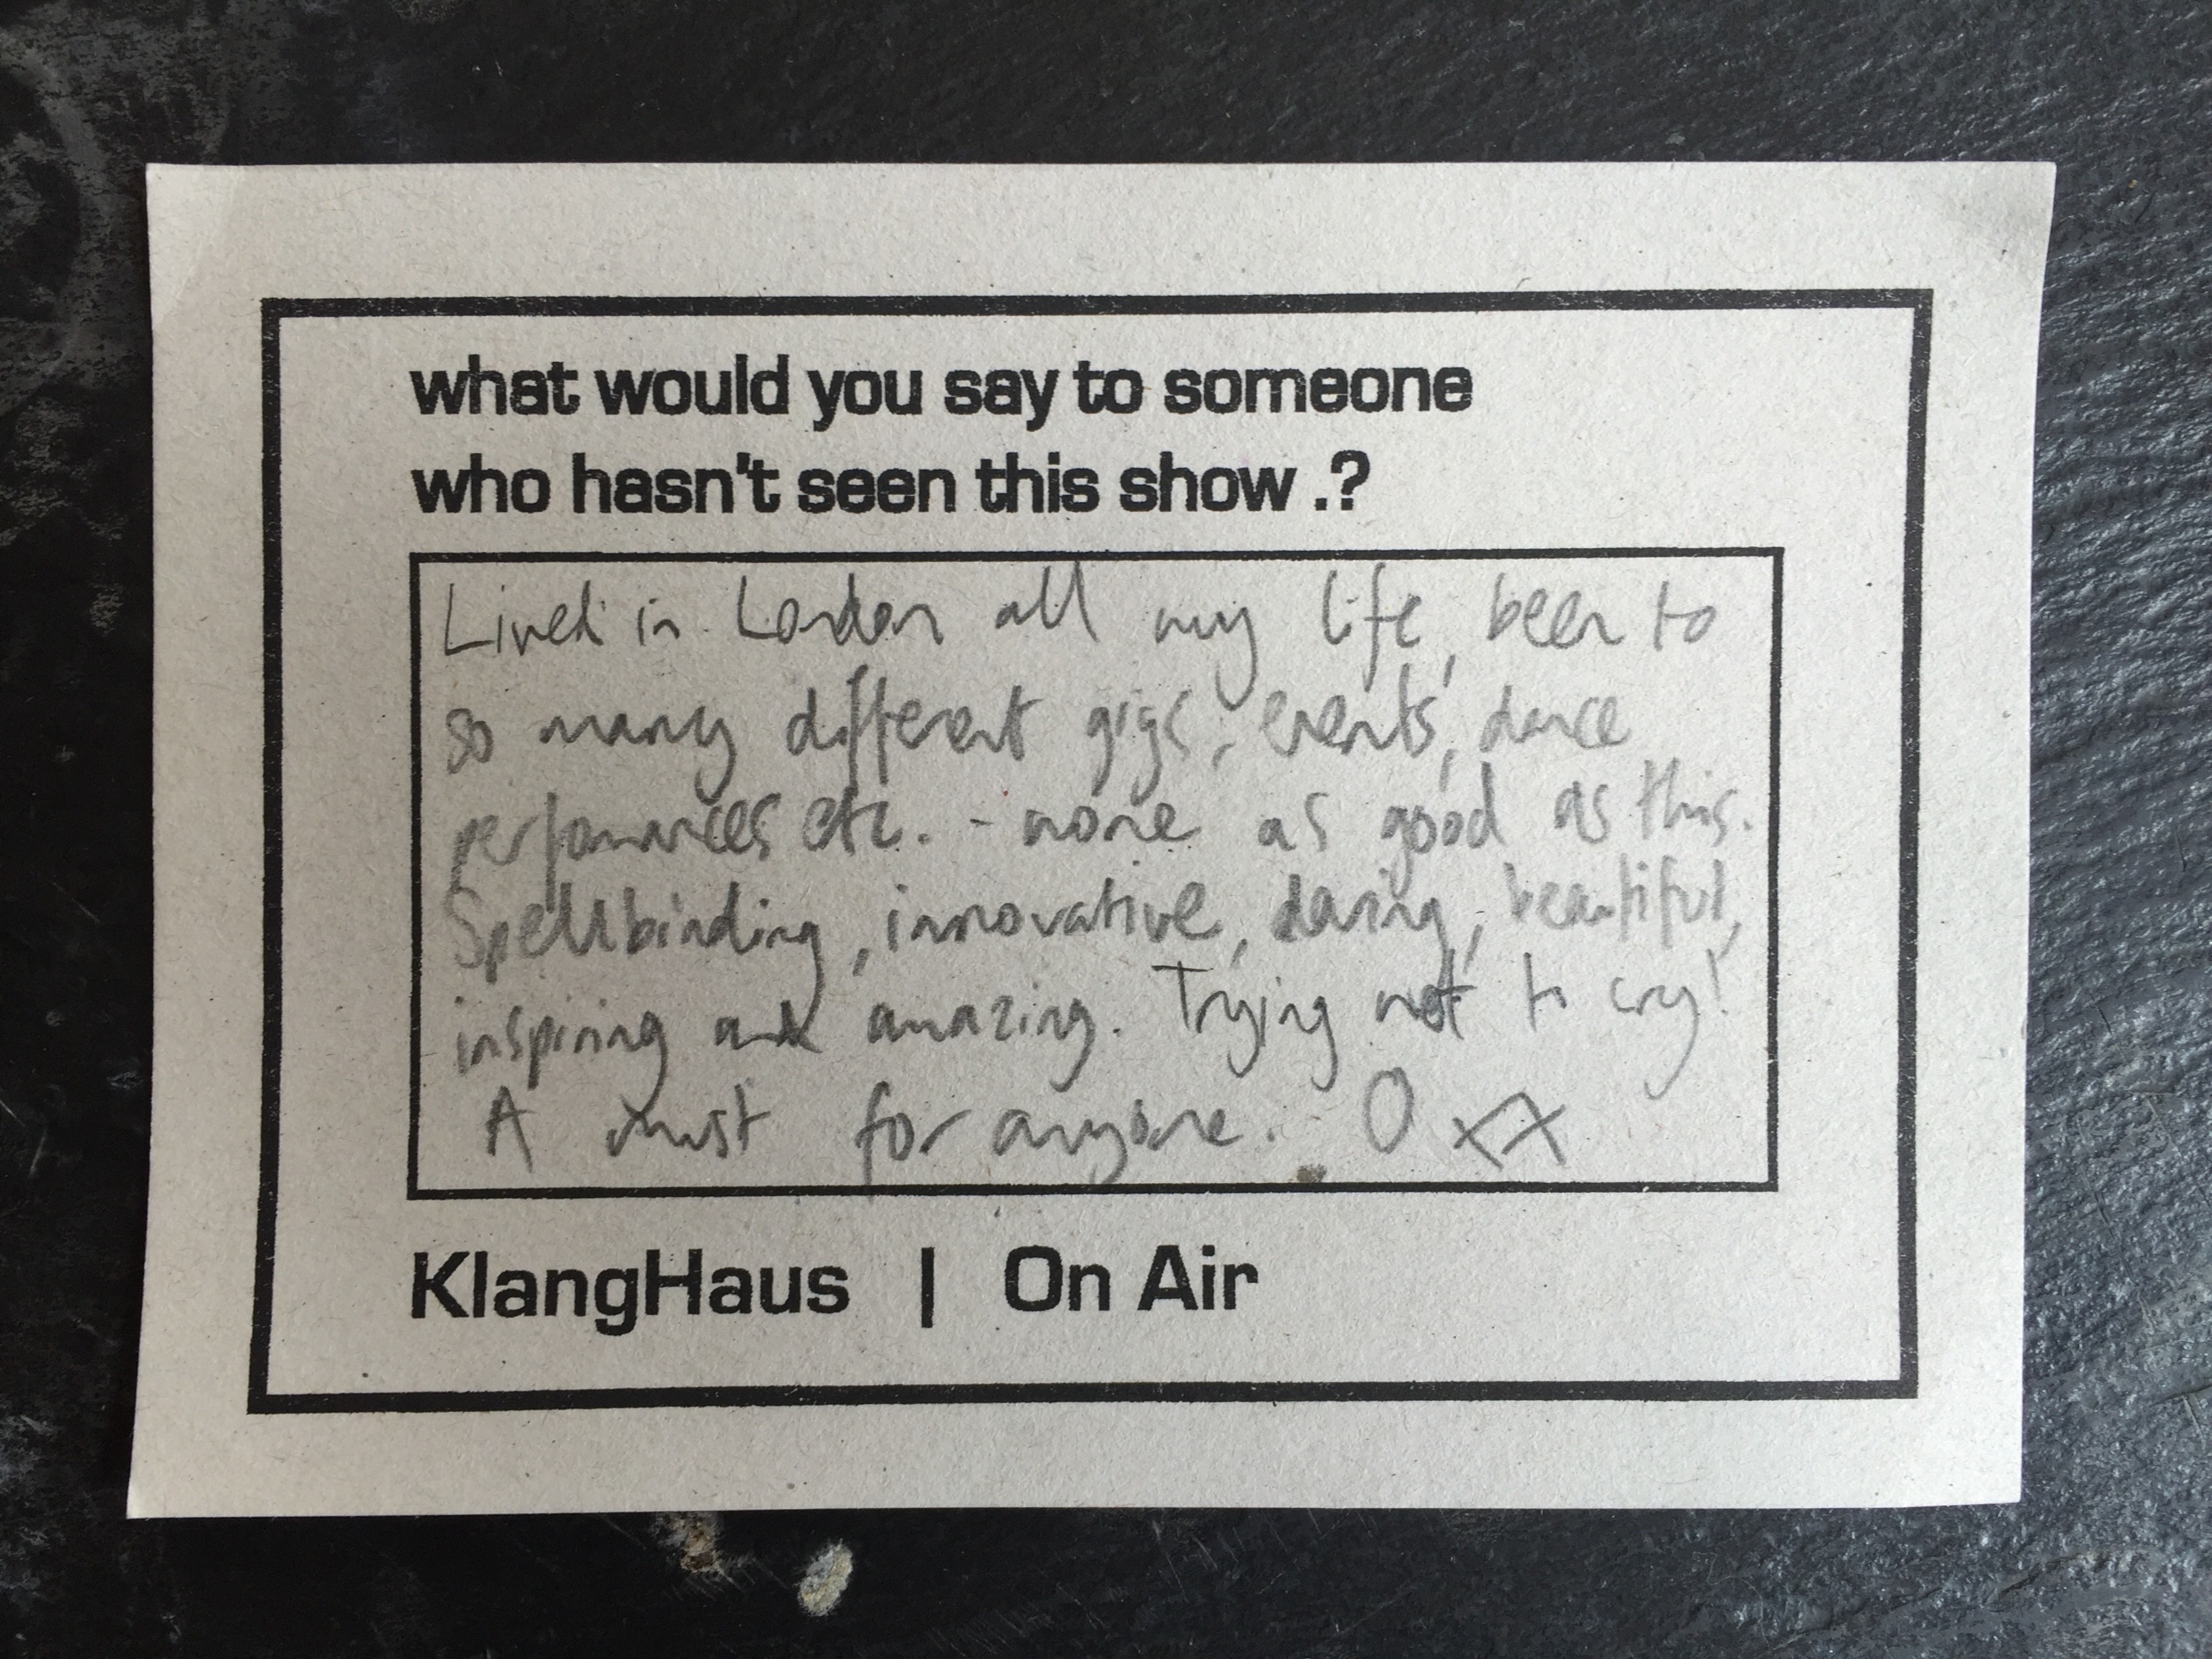 what would you say to someone
who hasn't seen this show .?
Lived in London all my life, been to
so many different gigs, events, dance
perfomances etc. - none as good as this.
Spellbinding, innovative, daring, beautiful,
inspiring and amazing. Trying not to cry!
A must for anyone. O xx
KlangHaus | On Air